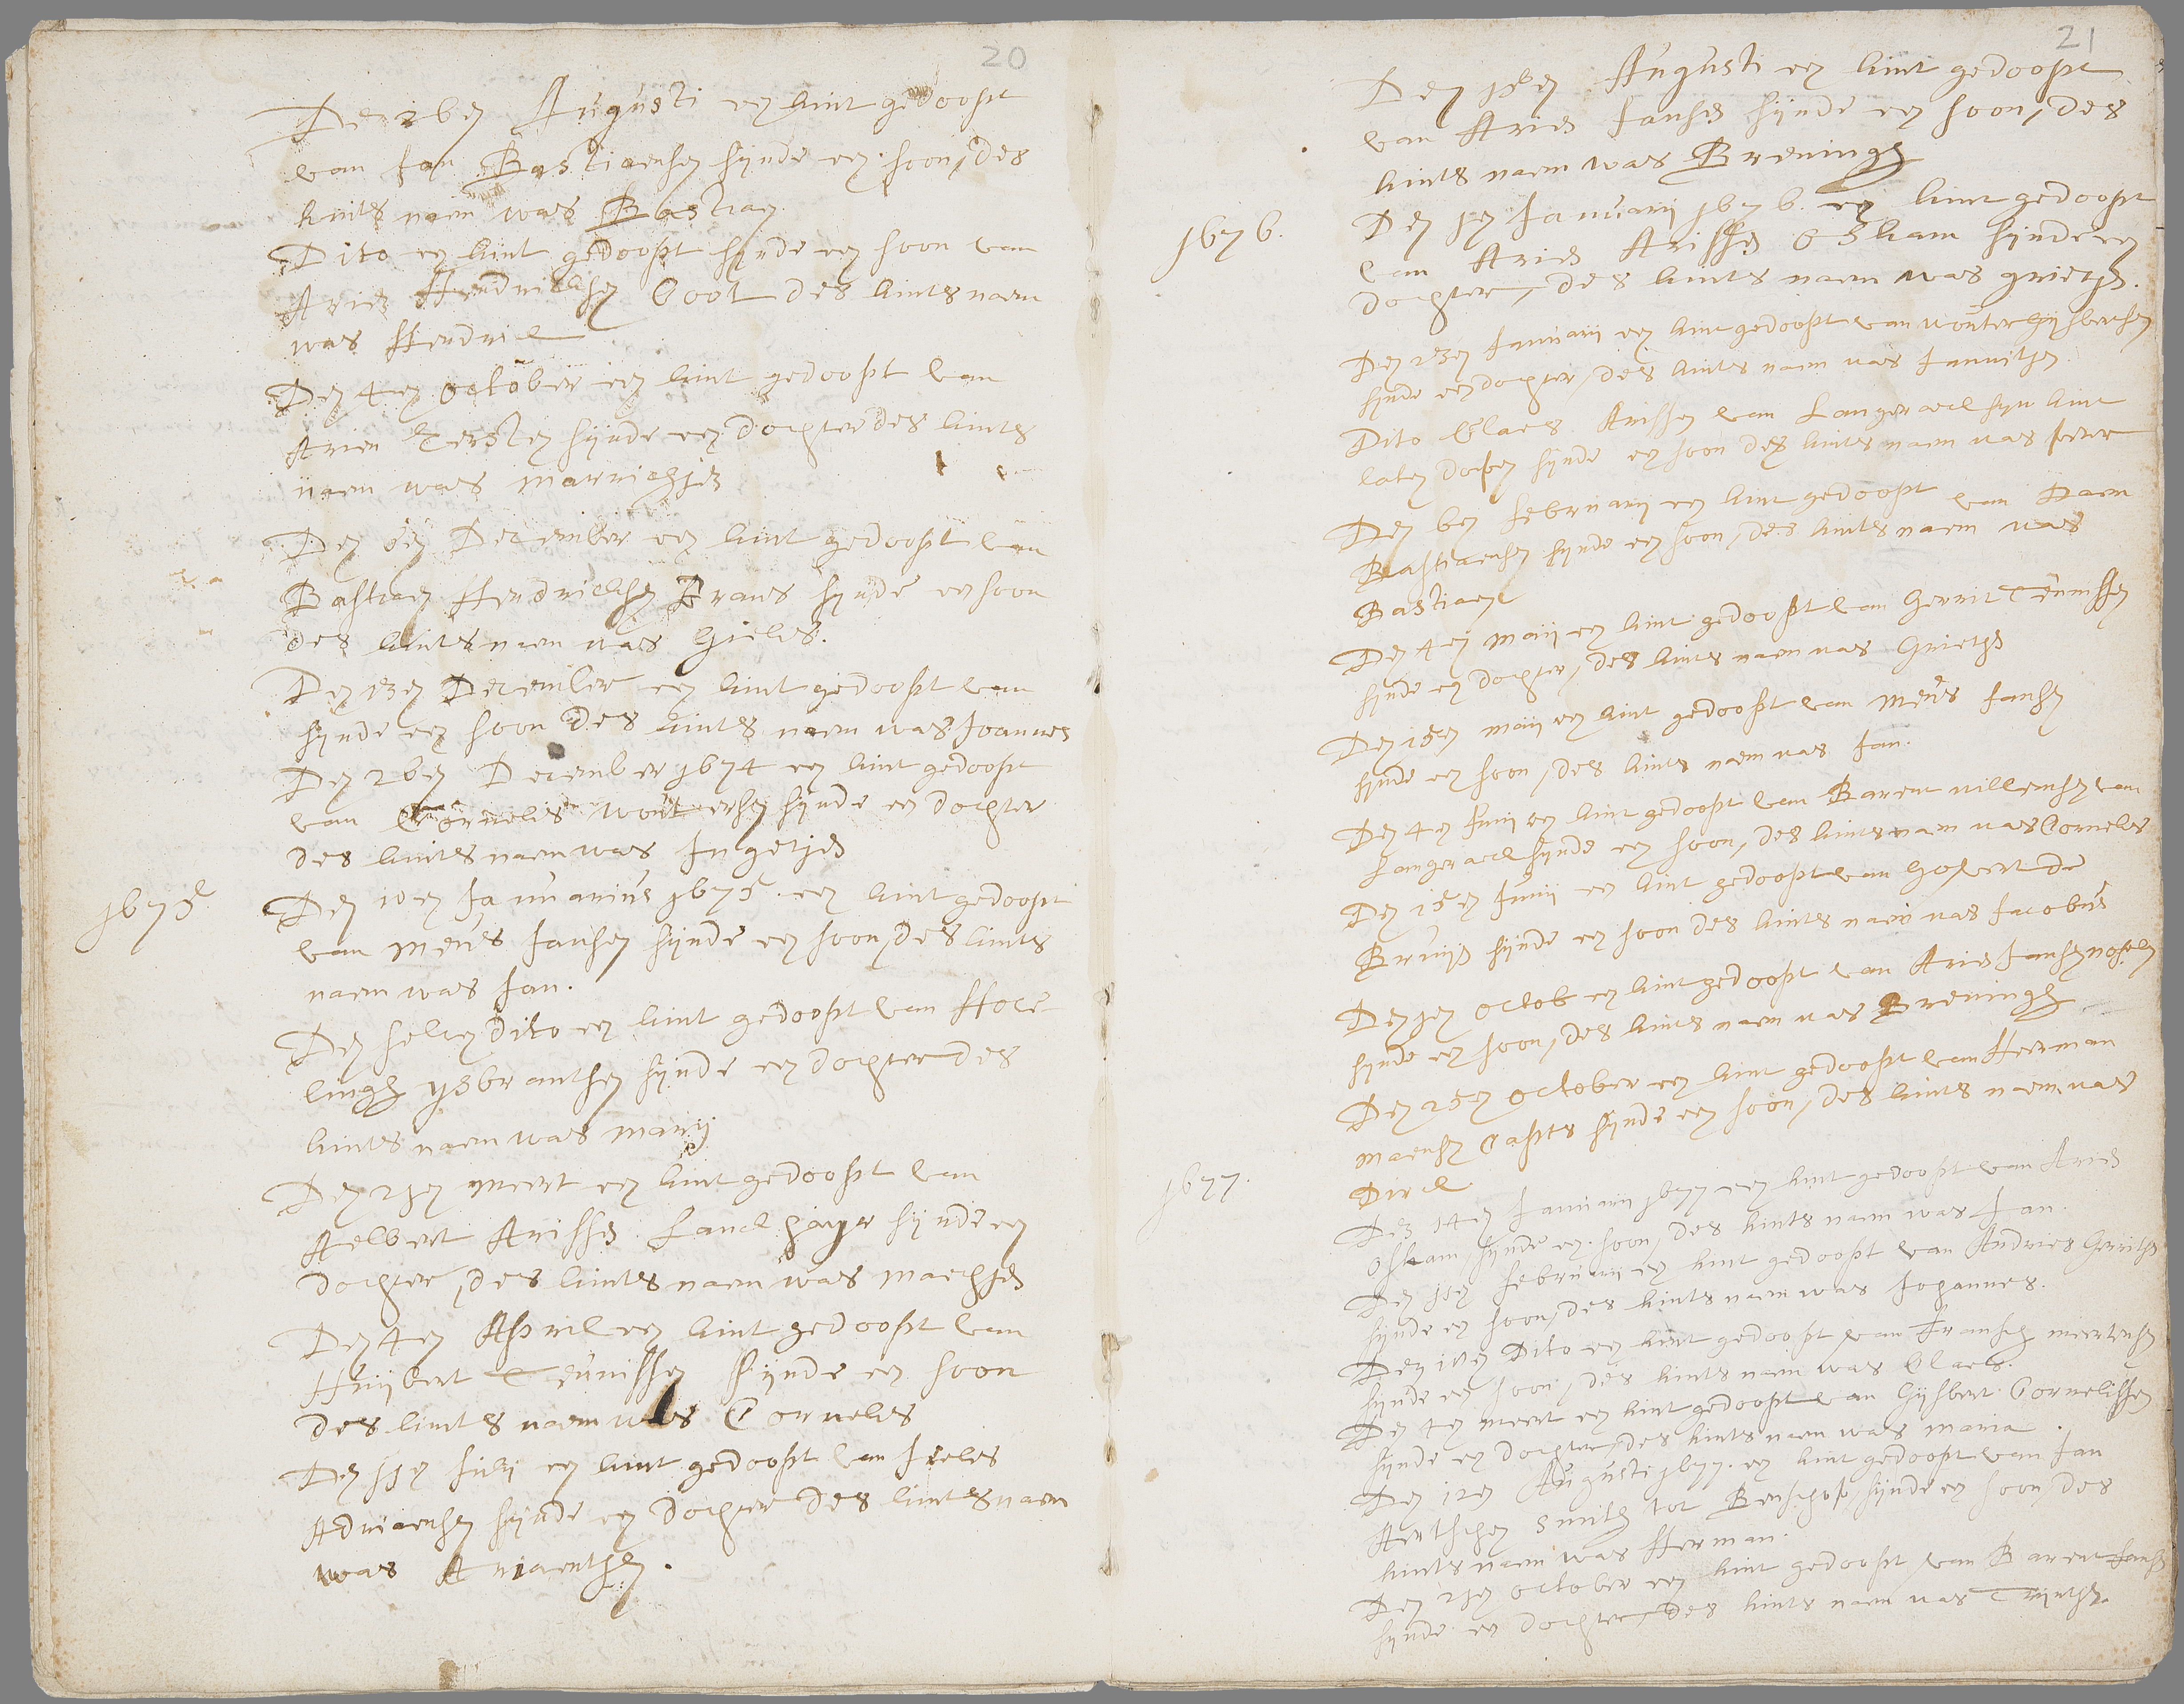 20
Den 26en Augusti een kint gedoopt
van Jan Bastiaensen sijnde een soon, des
kints naem was Bastiaen
Dito een kint gedoopt sijnde een soon van
Arien Hendricksen Cool des kints naem
was Hendrick
Den 4en october een kint gedoopt van
Arien Kersten sijnde een dochter des kints
naem was marrichjen
Den December een kint gedoopt van
Bastiaen Hendricksen sijnde een soon
des kints naem was Gieles.
Den 13en December een kint gedoopt van
sijnde een soon des kints naem was Joannes
Den 26en December 1674 een kint gedoopt
van Cornelis woutersen sijnde een dochter
des kints naem was Ingetjen
1675
Den 10en Januarius 1675. een kint gedoopt
van meus Jansen sijnde een soon, des kints
naem was Jan.
Den selven Dito een kint gedoopt van Hoce-
lingh ysbrantsen sijnde een dochter des
kints naem was marij
Den 21en meert een kint gedoopt van
Aelbert Arissen sijnde een
dochter, des kints naem was maechjen
Den 4en April een kint gedoopt van
Huijbert Teunissen sijnde een soon
des kints naem was Cornelis
Den 11en Julij een kint gedoopt van Jeeles
Adriaensen sijnde een dochter des kints naem
was Ariaenthen.
21
Den 18en Augusti een kint gedoopt
van Arien Jansen sijnde een soon, des
kints naem was Breuningh
1676.
Den 1en Januarij 1676. een kint gedoopt
van Arien Arissen Oskam sijnde een
dochter, des kints naem was grietjen.
Den 23en Januarij een kint gedoopt van wouter Gijsbertsen
sijnde een dochter, des kints naem was Jannitjen
Dito Claes Arissen van Langerack sijn kint
laten dopen sijnde een soon des kints naem was peter
Den 6en februarij een kint gedoopt van Daem
Bastiaensen sijnde een soon, des kints naem was
Bastiaen
Den 4en maij een kint gedoopt van Gerrit Teunissen
sijnde een dochter, des kints naem was Grietjen
Den 15en maij een kint gedoopt van meus Jansen
sijnde een soon, des kints naem was Jan.
Den 4en Junij een kint gedoopt van Barent willemsen van
Langerack sijnde een soon, des kints naem was Cornelis
Den 15en Junij een kint gedoopt van Govert de
Bruijn sijnde een soon des kints naem was Jacobus
Den 1en octob een kint gedoopt van Arien Jansen
sijnde een soon, des kints naem was Breuningh
Den 25en october een kint gedoopt van Herman
maensen Capts sijnde een soon, des kints naem was
Dirck
1677.
Den 14en Januarij 1677 een kint gedoopt van Arien
Oskam sijnde een soon, des kints naem was Jan.
Den 11en februarij een kint gedoopt van Andries Gerritsen
sijnde een soon, des kints naem was Johannes.
Den Dito een kint gedoopt van Fransch meertensen
sijnde een soon, des kints naem was Claes.
Den 4en meert een kint gedoopt van Gijsbert Cornelissen
sijnde een dochter, des kints naem was maria.
Den 12en Augusti 1677. een kint gedoopt van Jan
Aertschen Smith tot Benschop, sijnde een soon, des
kints naem was Herman.
Den 21en october een kint gedoopt van Barent Jansen
sijnde een dochter, des kints naem was Trijntjen.